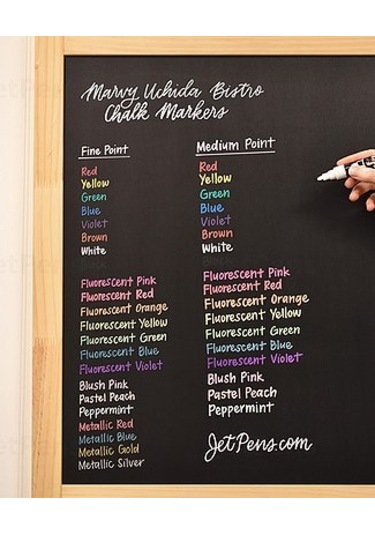 Marvy Uchida Bistro
Chalk Markers
Fine Point
Red
Yellow
Green
Blue
Violet
Brown
White
Black
Fluorescent Pink
Fluorescent Red
Fluorescent Orange
Fluorescent Yellow
Fluorescent Green
Fluorescent Blue
Fluorescent Violet
Blush Pink
Pastel Peach
Peppermint
Metallic Red
Metallic Blue
Metallic Gold
Metallic Silver
Medium Point
Red
Yellow
Green
Blue
Violet
Brown
White
Fluorescent Pink
Fluorescent Red
Fluorescent Orange
Fluorescent Yellow
Fluorescent Green
Fluorescent Blue
Fluorescent Violet
Blush Pink
Pastel Peach
Peppermint
JetPens.com